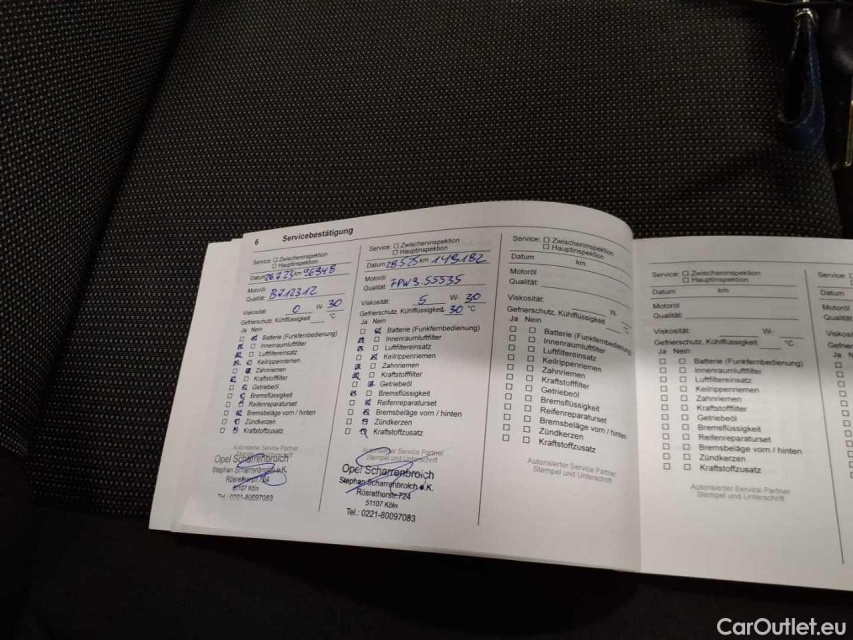 6 Servicebestätigung
Service: ☐ Zwischeninspektion
☐ Hauptinspektion
Datum 26.7.23 km 96348
Motoröl
Qualität: B712312
Viskosität: 0 W- 30
Gefrierschutz, Kühlflüssigkeit °C
Ja Nein
Batterie (Funkfernbedienung)
Innenraumluftfilter
Luftfiltereinsatz
Keilrippenriemen
Zahnriemen
Kraftstofffilter
Getriebeöl
Bremsflüssigkeit
Reifenreparaturset
Bremsbeläge vorn / hinten
Zündkerzen
Kraftstoffzusatz
Autorisierter Service Partner
Opel Scharrenbroich
Stephan Scharrenbroich e.K.
Rösratherstr.724
51107 Köln
Tel.: 0221-80097083
Service: ☐ Zwischeninspektion
☐ Hauptinspektion
Datum 28.5.25 km 149182
Motoröl
Qualität: 7PW3 55535
Viskosität: 5 W- 30
Gefrierschutz, Kühlflüssigkeit 30 °C
Ja Nein
Batterie (Funkfernbedienung)
Innenraumluftfilter
Luftfiltereinsatz
Keilrippenriemen
Zahnriemen
Kraftstofffilter
Getriebeöl
Bremsflüssigkeit
Reifenreparaturset
Bremsbeläge vorn / hinten
Zündkerzen
Kraftstoffzusatz
Autorisierter Service Partner
Stempel und Unterschrift
Opel Scharrenbroich
Stephan Scharrenbroich e.K.
Rösratherstr.724
51107 Köln
Tel.: 0221-80097083
Service: ☐ Zwischeninspektion
☐ Hauptinspektion
Datum km
Motoröl
Qualität:
Viskosität: W-
Gefrierschutz, Kühlflüssigkeit °C
Ja Nein
☐ ☐ Batterie (Funkfernbedienung)
☐ ☐ Innenraumluftfilter
☐ ☐ Luftfiltereinsatz
☐ ☐ Keilrippenriemen
☐ ☐ Zahnriemen
☐ ☐ Kraftstofffilter
☐ ☐ Getriebeöl
☐ ☐ Bremsflüssigkeit
☐ ☐ Reifenreparaturset
☐ ☐ Bremsbeläge vorn / hinten
☐ ☐ Zündkerzen
☐ ☐ Kraftstoffzusatz
Autorisierter Service Partner
Stempel und Unterschrift
Service: ☐ Zwischeninspektion
☐ Hauptinspektion
Datum km
Motoröl
Qualität:
Viskosität: W-
Gefrierschutz, Kühlflüssigkeit °C
Ja Nein
☐ ☐ Batterie (Funkfernbedienung)
☐ ☐ Innenraumluftfilter
☐ ☐ Luftfiltereinsatz
☐ ☐ Keilrippenriemen
☐ ☐ Zahnriemen
☐ ☐ Kraftstofffilter
☐ ☐ Getriebeöl
☐ ☐ Bremsflüssigkeit
☐ ☐ Reifenreparaturset
☐ ☐ Bremsbeläge vorn / hinten
☐ ☐ Zündkerzen
☐ ☐ Kraftstoffzusatz
Autorisierter Service Partner
Stempel und Unterschrift
Service:
Datum
Motoröl
CarOutlet.eu